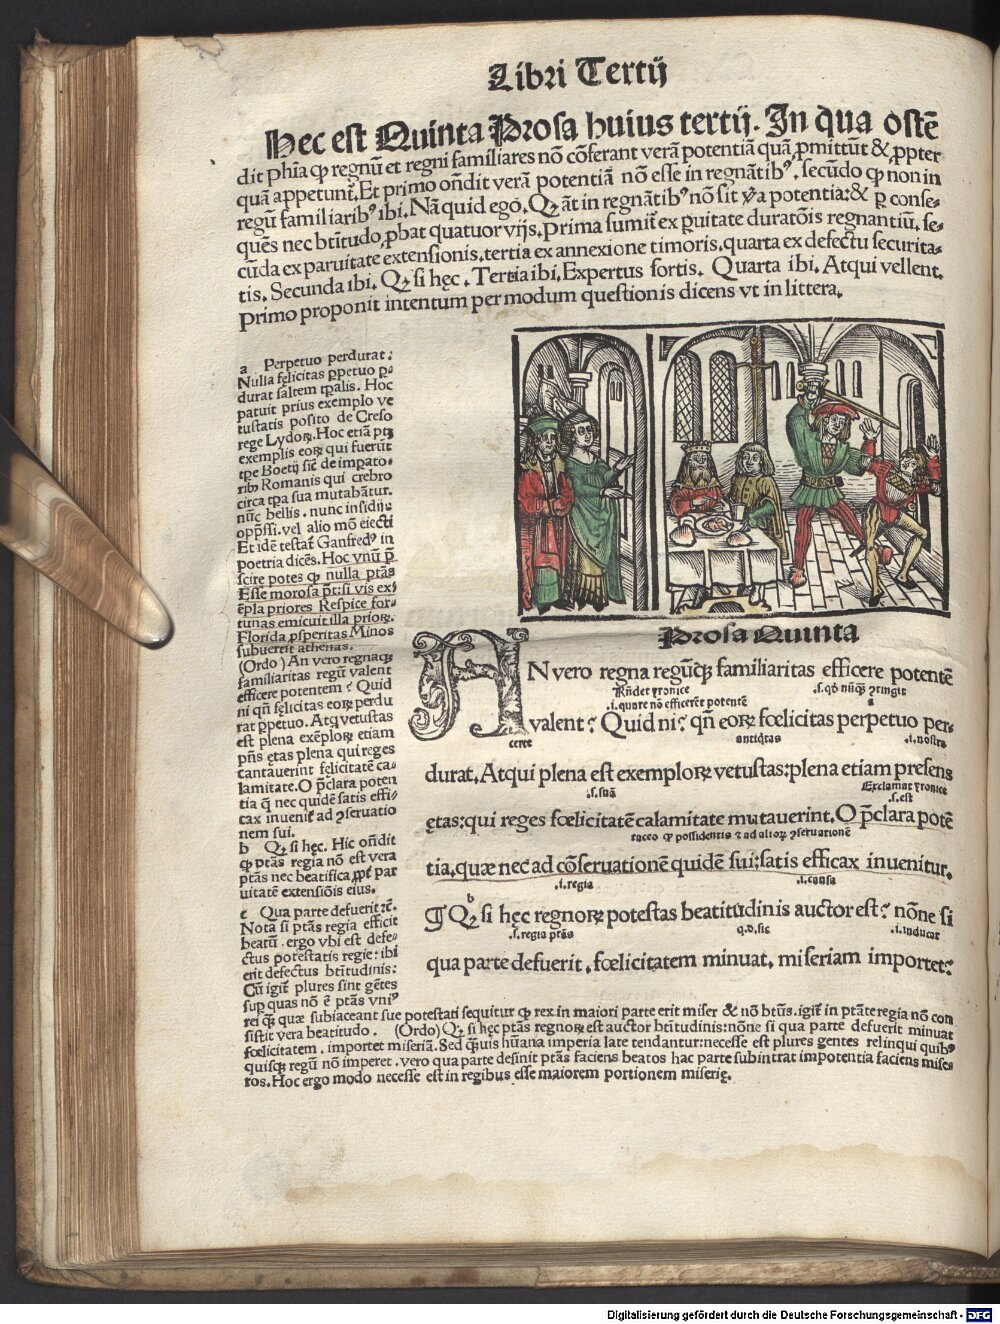 Libri Tertij
Hec est Quinta Prosa huius tertij. In qua ostē
dit phīa ꝙ regnū et regni familiares nō cōferant verā potentiā quā ꝓmittūt & ꝓpter
quā appetunt. Et primo oñdit verā potentiā nō esse in regnātibꝰ, secūdo ꝙ non in
regū familiaribꝰ ibi. Nā quid egō. Qꝫ āt in regnātibꝰ nō sit v̄a potentia: & ꝑ conse⸗
quēs nec bt̄itudo, ꝓbat quatuor vijs. Prima sumit̄ ex ꝑuitate duratōis regnantiū, se⸗
cūda ex paruitate extensionis. tertia ex annexione timoris. quarta ex defectu securita⸗
tis. Secunda ibi. Qꝫ si hęc. Tertia ibi. Expertus fortis. Quarta ibi. Atqui vellent.
Primo proponit intentum per modum questionis dicens vt in littera.
a Perpetuo perdurat:
Nulla fęlicitas ꝑpetuo ꝑ⸗
durat saltem tꝑalis. Hoc
patuit prius exemplo ve
tustatis posito de Creso
rege Lydoꝝ. Hoc etiā ptꝫ
exemplis eoꝝ qui fuerūt
tꝑe Boetij sic̄ de impato⸗
ribꝰ Romanis qui crebro
circa tꝑa sua mutabātur.
nūc bellis. nunc insidijs
opp̄ssi. vel alio mō eiecti
Et idē testat̄ Ganfredꝰ in
poetria dicēs. Hoc vnū p̄
scire potes ꝙ nulla ptās
Esse morosa pt: si vis ex⸗
ēpla priores Respice for⸗
tunas emicuit illa prioꝝ.
Florida ꝓsperitas Minos
subuertit athenas.
(Ordo) An vero regnaqꝫ
familiaritas regū valent
efficere potentem? Quid
ni qñ fęlicitas eoꝝ perdu
rat ꝑpetuo. Atq̄ vetustas
est plena exēploꝝ etiam
pñs ętas plena qui reges
cantauerint felicitatē ca⸗
lamitate. O p̄clara poten
tia q̄ nec quidē satis effi⸗
cax inuenit̄ ad ꝯseruatio
nem sui.
b Qꝫ si hęc. Hic oñdit
ꝙ ptās regia nō est vera
ptās nec beatifica ꝓpt̄ par
uitatē extensiōis eius.
c Qua parte defuerit ꝛc̄.
Nota si ptās regia efficit
beatū. ergo vbi est defe⸗
ctus potestatis regie: ibi
erit defectus bt̄itudinis:
Cū igit̄ plures sint gētes
suꝑ quas nō ē ptās vniꝰ
rei qꝫ quæ subiaceant sue potestati sequitur ꝙ rex. in maiori parte erit miser & nō bt̄us. igit̄ in ptāte regia nō con
sistit vera beatitudo. (Ordo) Qꝫ si hęc ptās regnoꝝ est auctor bt̄itudinis: nōne si qua parte defuerit minuat
fœlicitatem. importet miseriā. Sed qꝫuis hūana imperia late tendantur: necesse est plures gentes relinqui quibꝰ
quisqꝫ regū nō imperet. vero qua parte desinit ptās faciens beatos hac parte subintrat impotentia faciens mise⸗
ros. Hoc ergo modo necesse est in regibus esse maiorem portionem miserię.
Prosa Quinta
AN vero regna regūqꝫ familiaritas efficere potentē
Rñdet yronice .s. qd̄ nūqꝫ ꝯtingit
.i. quare nō efficeret potentē a
valent? Quid ni? qñ eoꝝ fœlicitas perpetuo per⸗
certe antiq̄tas .i. nostra
durat. Atqui plena est exemploꝝ vetustas: plena etiam presens
.s. suā Exclamat yronice
.s. est
ętas: qui reges fœlicitatē calamitate mutauerint. O p̄clara potē
taceo ꝙ possidentis ⁊ ad alioꝝ ꝯseruationē
tia, quæ nec ad cōseruationē quidē sui: satis efficax inuenitur.
.i. regia .i. causa
b
¶ Qꝫ si hęc regnoꝝ potestas beatitudinis auctor est? nōne si
.s. regia ptās q.d. sic .i. inducat
qua parte defuerit, fœlicitatem minuat, miseriam importet?
Digitalisierung gefördert durch die Deutsche Forschungsgemeinschaft - DFG